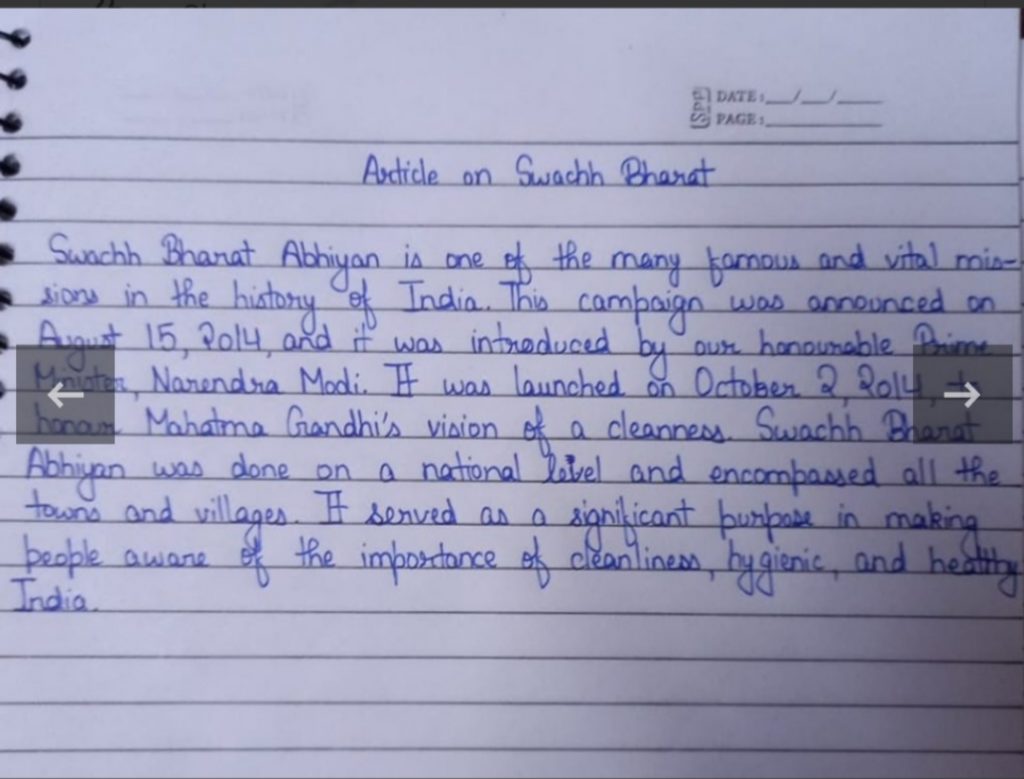 DATE: __/__/____
PAGE: ________
Article on Swachh Bharat
Swachh Bharat Abhiyan is one of the many famous and vital mis-
sions in the history of India. This campaign was announced on
August 15, 2014, and it was introduced by our honourable Prime
Minister, Narendra Modi. It was launched on October 2, 2014, to
honour Mahatma Gandhi's vision of a cleanness. Swachh Bharat
Abhiyan was done on a national level and encompassed all the
towns and villages. It served as a significant purpose in making
people aware of the importance of cleanliness, hygienic, and healthy
India.